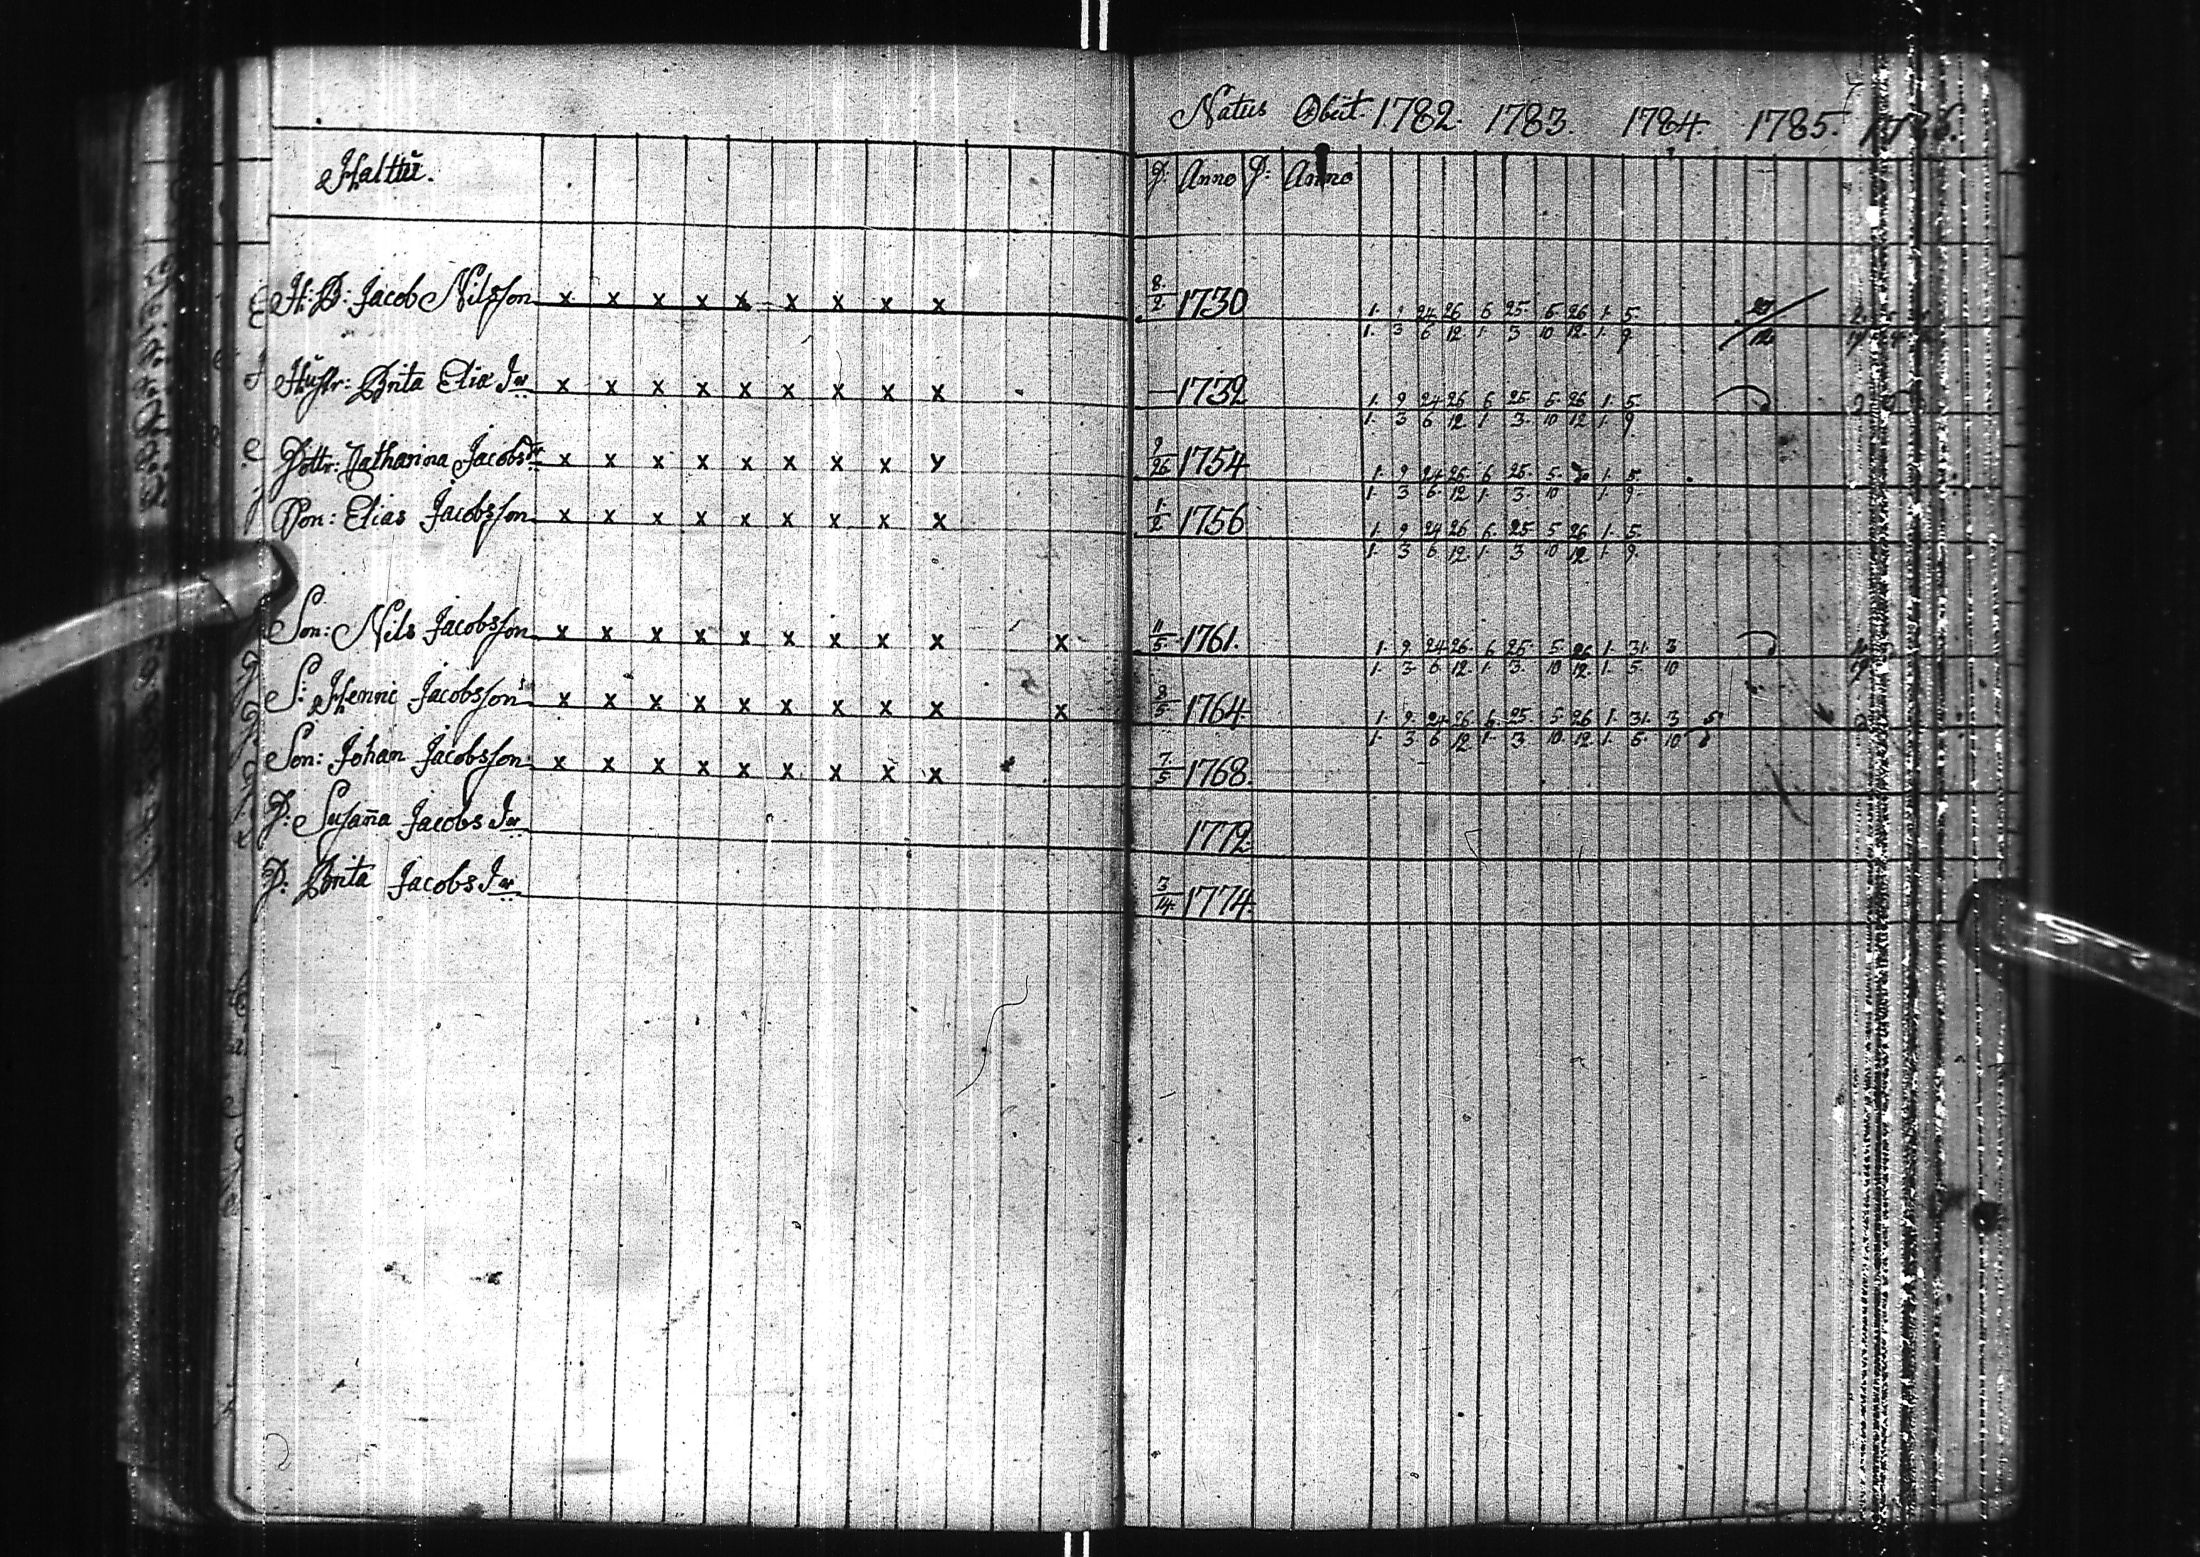 Natus Obiit. 1782. 1783. 1784. 1785.
Halttu. D: Anno D: Anno
H: B: Jacob Nilsson x x x x x x x x x 8/2 1730 1/1 9/3 24/6 26/12 6/1 25/3 5/10 26/12 1/1 5/9 27/12
Hustr: Brita Eliæ Dr x x x x x x x x x — 1732 1/1 9/3 24/6 26/12 6/1 25/3 5/10 26/12 1/1 5/9
Dottr: Catharina Jacobs Dr x x x x x x x x x 9/26 1754 1/1 9/3 24/6 26/12 6/1 25/3 5/10 1/1 5/9
Son: Elias Jacobsson x x x x x x x x x 1/2 1756 1/1 9/3 24/6 26/12 6/1 25/3 5/10 26/12 1/1 5/9
Son: Nils Jacobsson x x x x x x x x x x 11/5 1761. 1/1 9/3 24/6 26/12 6/1 25/3 5/10 26/12 1/1 31/5 3/10
S: Henric Jacobsson x x x x x x x x x x 8/5 1764 1/1 9/3 24/6 26/12 6/1 25/3 5/10 26/12 1/1 31/5 3/10
Son: Johan Jacobsson x x x x x x x x x 7/5 1768.
D: Susan̄a Jacobs Dr 1772.
D: Brita Jacobs Dr 3/14 1774.